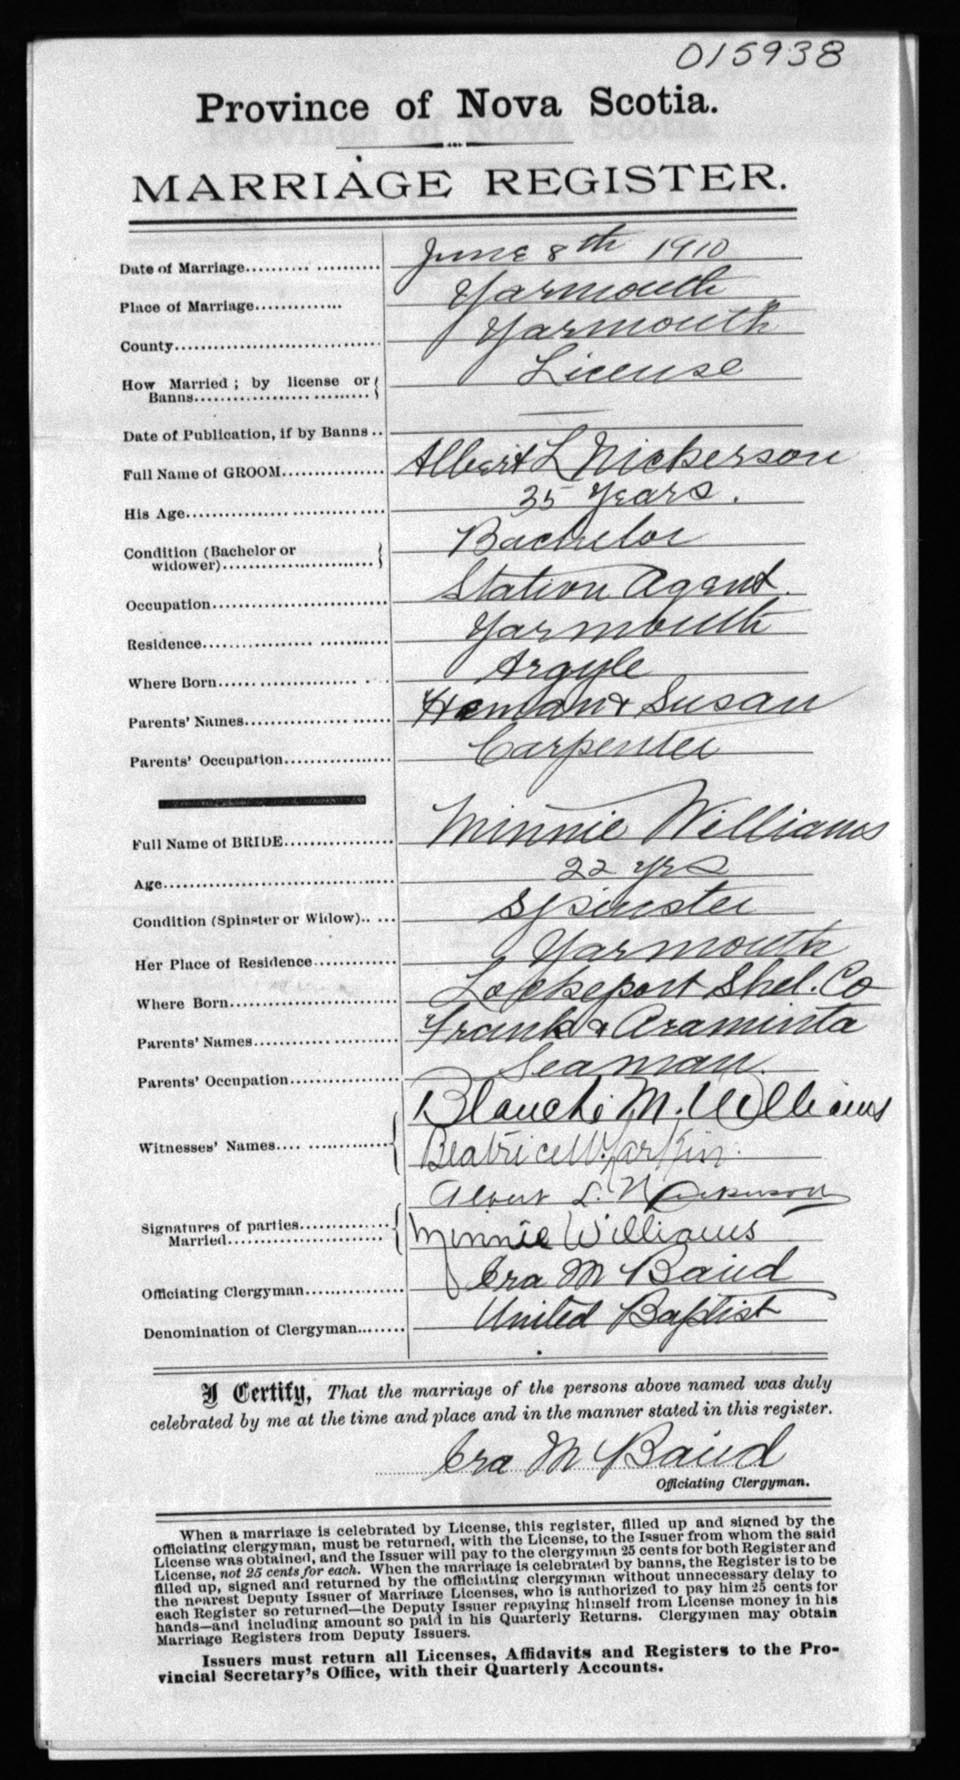 015938
Province of Nova Scotia.
MARRIAGE REGISTER.
Date of Marriage.......... June 8th 1910
Place of Marriage............. Yarmouth
County.............................. Yarmouth
How Married; by license or Banns............................ License
Date of Publication, if by Banns .. —
Full Name of GROOM............... Albert L Nickerson
His Age............................. 35 Years.
Condition (Bachelor or widower)...................... Bachelor
Occupation......................... Station Agent.
Residence........................... Yarmouth
Where Born...................... Argyle
Parents' Names..................... Heman & Susan
Parents' Occupation................ Carpenter
Full Name of BRIDE................ Minnie Williams
Age.................................. 22 yrs
Condition (Spinster or Widow)..... Spinster
Her Place of Residence............. Yarmouth
Where Born........................ Lockeport Shel. Co
Parents' Names..................... Frank & Araminta
Parents' Occupation................ Seaman.
Witnesses' Names.................. Blanche M. Williams
Beatrice W.
Signatures of parties Married...................... Albert L. Nickerson
Minnie Williams
Officiating Clergyman............... Ira M Baird
Denomination of Clergyman........ United Baptist
I Certify, That the marriage of the persons above named was duly
celebrated by me at the time and place and in the manner stated in this register.
Ira M Baird
Officiating Clergyman.
When a marriage is celebrated by License, this register, filled up and signed by the
officiating clergyman, must be returned, with the License, to the Issuer from whom the said
License was obtained, and the Issuer will pay to the clergyman 25 cents for both Register and
License, not 25 cents for each. When the marriage is celebrated by banns, the Register is to be
filled up, signed and returned by the officiating clergyman without unnecessary delay to
the nearest Deputy Issuer of Marriage Licenses, who is authorized to pay him 25 cents for
each Register so returned—the Deputy Issuer repaying himself from License money in his
hands—and including amount so paid in his Quarterly Returns. Clergymen may obtain
Marriage Registers from Deputy Issuers.
Issuers must return all Licenses, Affidavits and Registers to the Pro-
vincial Secretary's Office, with their Quarterly Accounts.